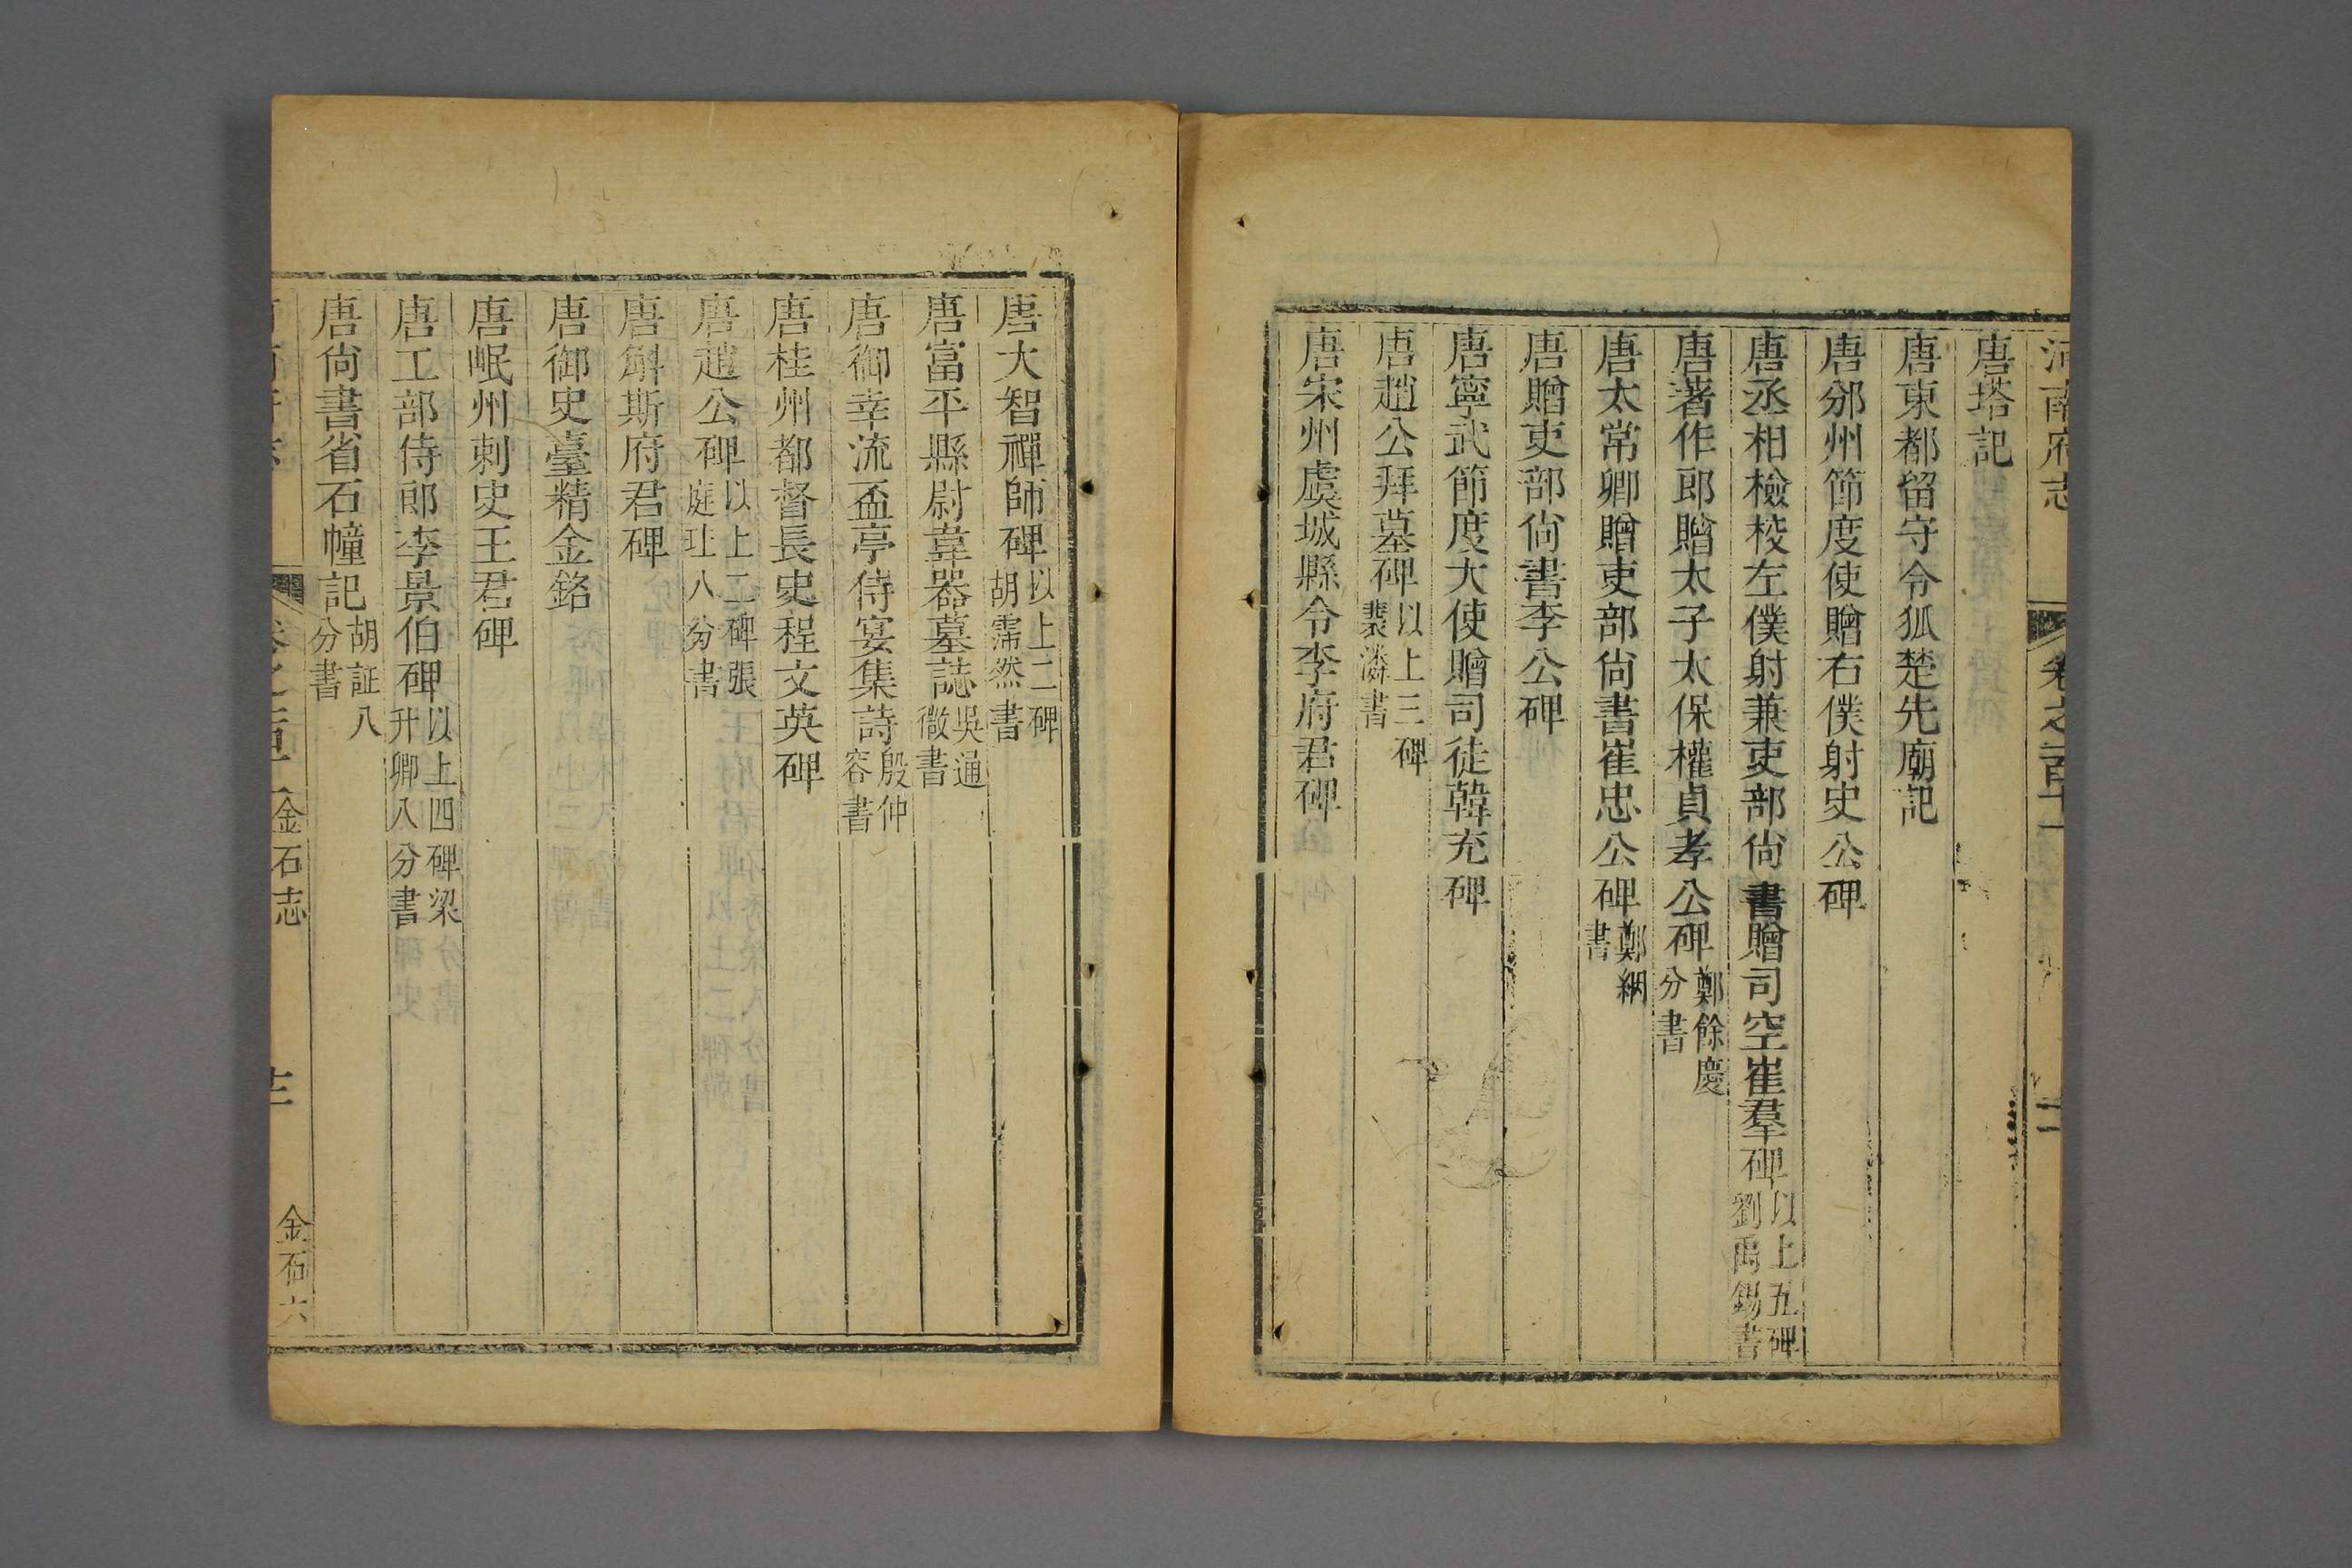 河南府志 卷之一百十一
唐塔記
唐東都留守令狐楚先廟記
唐邠州節度使贈右僕射史公碑
唐丞相檢校左僕射兼吏部尚書贈司空崔羣碑以上五碑劉禹錫書
唐著作郎贈太子太保權貞孝公碑鄭餘慶分書
唐太常卿贈吏部尚書崔忠公碑鄭絪書
唐贈吏部尚書李公碑
唐寧武節度大使贈司徒韓充碑
唐趙公拜墓碑以上三碑裴潾書
唐宋州虞城縣令李府君碑
唐大智禪師碑以上二碑胡霈然書
唐富平縣尉韋器墓誌吳通微書
唐御幸流盃亭侍宴集詩殷仲容書
唐桂州都督長史程文英碑
唐趙公碑以上二碑張庭珪八分書
唐斛斯府君碑
唐御史臺精金銘
唐岷州刺史王君碑
唐工部侍郎李景伯碑以上四碑梁升卿八分書
唐尚書省石幢記胡証八分書
金石志 金石六